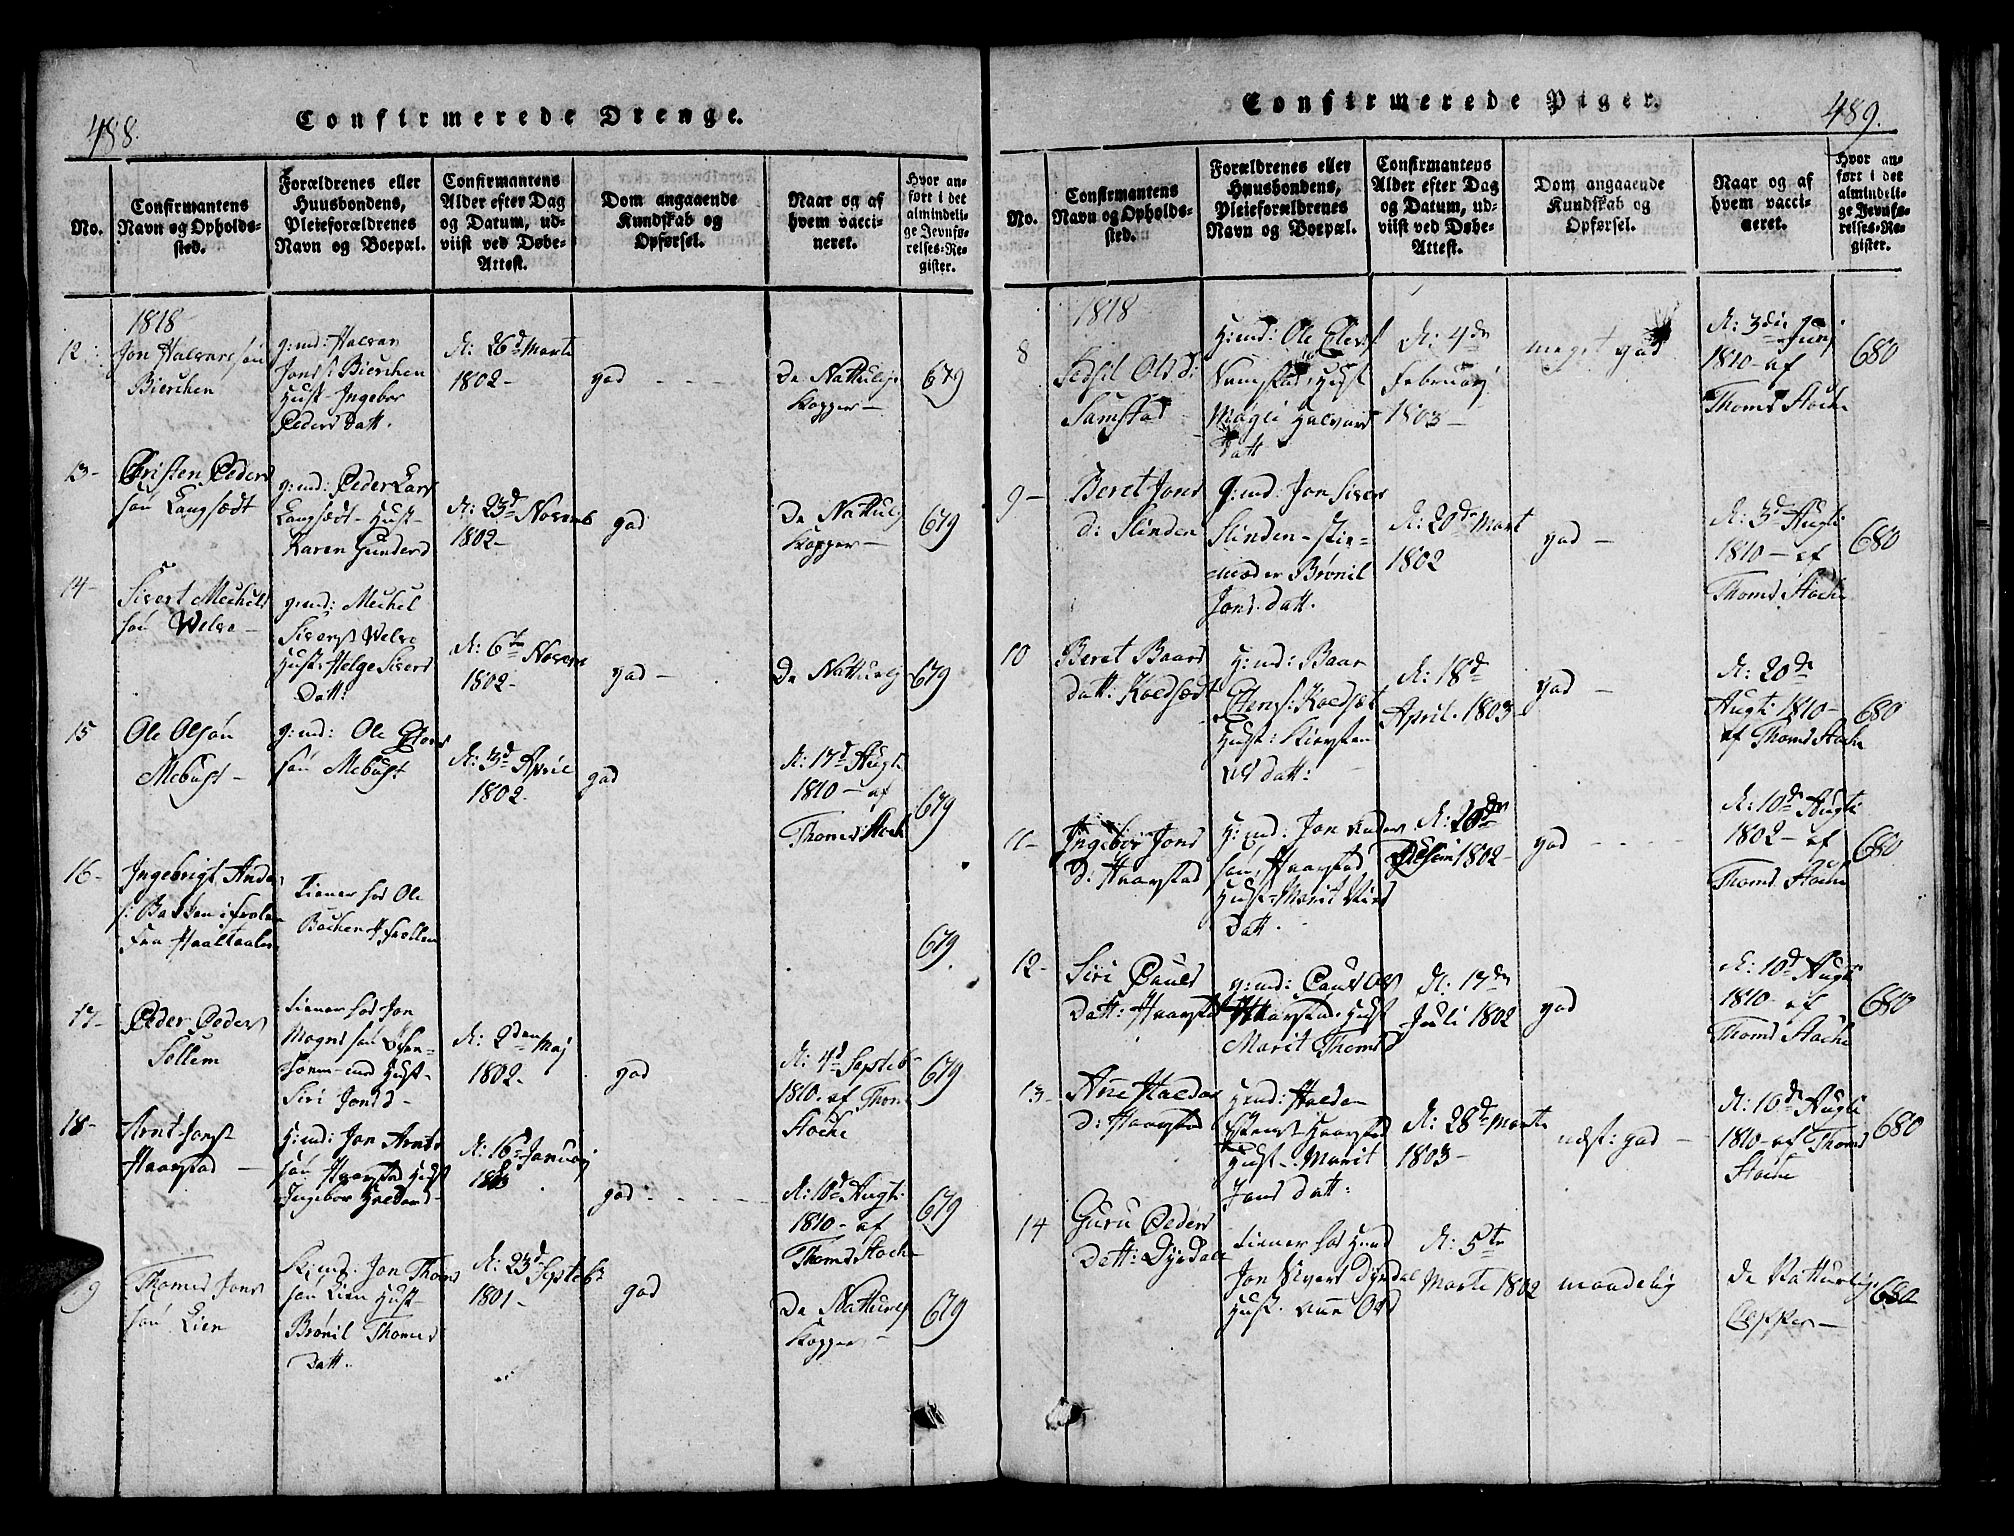 488.
Confirmerede Drenge.
No.
Confirmantens
Navn og Opholds-
sted.
Forældrenes eller
Huusbondens,
Pleieforældrenes
Navn og Boepæl.
Confirmantens
Alder efter Dag
og Datum, ud-
viist ved Døbe-
Attest.
Dom angaaende
Kundskab og
Opførsel.
Naar og af
hvem vacci-
neret.
Hvor an-
ført i det
almindeli-
ge Jevnfø-
relses-Re-
gister.
1818
12
Jon Halvors søn
Bierchen
gmd: Halvor
Jons: Bierchen
Hust- Ingebor
Peders Datt.
d: 26d Marti
1802-
god
De Nattulig
Kopper-
679
13-
Christen Peders
søn Langsødt
gmd: Peder Lars
Langsødt- Hust-
Karen Gunders
d: 23d Novemb
1802-
god
De Nattulig
Kopper-
679
14-
Sivert Mechels
søn Welve-
gmd: Mechel
Sivers Welve
Hust: Helge Sivers
Datt:
d: 6te Novem
1802-
god-
De Nattulig
679
15
Ole Olsøn
Mebust-
gmd: Ole
søn Mebust
d: 3d April
1802.
god
d: 17d Augti
1810- af
Thomd Stoche
679
16-
Ingebrigt Anders
s: Backen i
Fra Haaltaalen
Tiener hos Ole
Bachen
679
17-
Peder Peders
Sollem
tiener hos Jon
Mogns søn
Hust-
Siri Jonsd-
d: 2den Maj
1802-
god
d: 4d Septeb
1810. af Thom
Stoche
679
18-
Arnt Jons
Haarstad
Hmd: Jon Arnts
søn Haarstad Hust
Ingebor
d: 16d Januarj
1803
god
d: 10d Augti
1810- af
Thomd Stoche
679
9
Thomes Jons
søn Lien
Jon Thoms
søn Lien Hust-
Brønil Thomes
Datt.
d: 23d Septeb
1801-
god
De Nattulig
Kopper-
679
489.
Confirmerede Piger.
No.
Confirmantens
Navn og Opholds-
sted.
Forældrenes eller
Huusbondens,
Pleieforældrenes
Navn og Boepæl.
Confirmantens
Alder efter Dag
og Datum, ud-
viist ved Døbe-
Attest.
Dom angaaende
Kundskab og
Opførsel.
Naar og af
hvem vacci-
neret.
Hvor an-
ført i det
almindeli-
ge Jevnfø-
relses-Re-
gister.
1818
8
Sidsel Ols D:
Samstad
Hmd: Ole
Samstad, Hust
Magli Halvors
Datt
d: 4de
Februarj
1803-
meget god
d: 3die Junj
1810- af
Thomd Stoche
680
9-
Beret Jons
d: Slinden
gmd: Jon Siver
Slinden- stie-
moder Brønil
Jons Datt.
d: 20de Mart
1802
god-
d: 3d Augti
1810- af
Thomd Stoche
680
10
Beret Baars
datt: Koldsødt
Hmd: Baar
Estens: Koldsødt
Hust: Kiersten
Datt:
d: 18d
April. 1803
god-
d: 20de
Augti 1810-
af Thomd Stoche
680
11-
Ingebor Jons
D: Haarstad
Hmd: Jon Anders
søn, Haarstad
Hust- Marit
Datt.
d: 20de
1802-
god
d: 10d Augti
1802- af
Thomd Stoche
680
12-
Siri Pauls
Datt: Haarstad
gmd: Paul Ols
Haarstad. Hust
Marit Thomsd
d: 17de
Juli 1802
god
d: 10d Augti
1810- af
Thomd Stoche
680
13-
Ane Haldor
d: Haarstad
Hmd: Haldor
Estens- Haarstad
Hust-: Marit
Jons Datt:
d: 28de Marti
1803-
næst: god-
d: 10de Augti
1810- af Thoms
Stoche
680
14
Guru Peders
Datt: Dyrdal
tiener hos Hmd
Jon Sivers Dyrdal
Hust. Ane Olsd
d: 5te
Marti 1802
maadelig
De Natturlig
Copper-
680